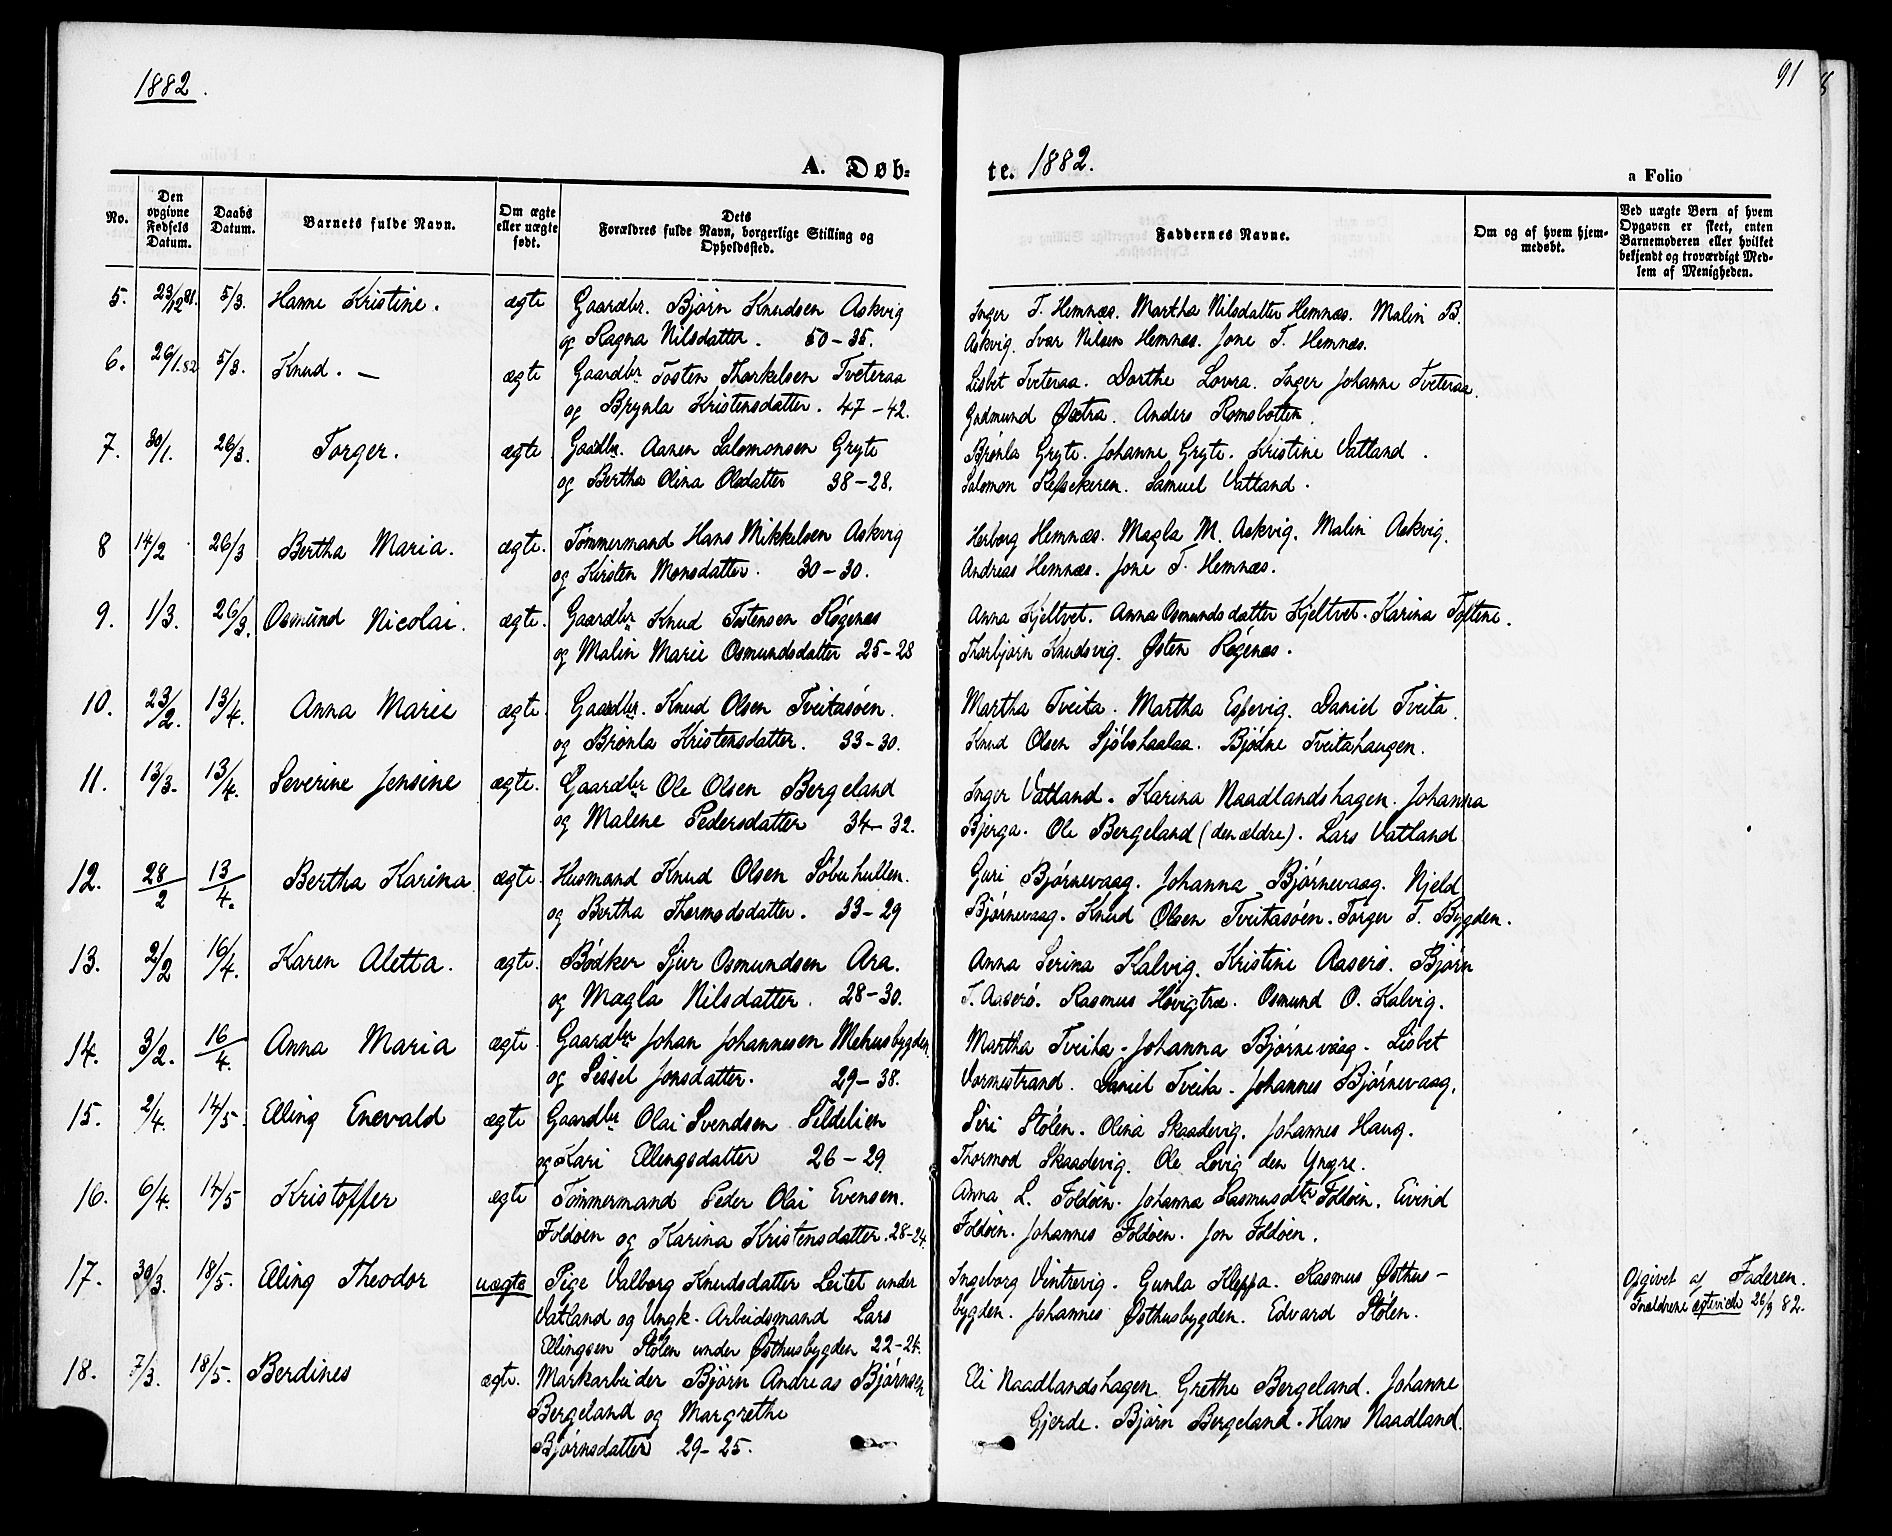 1882.
91
A. Døb-
te. 1882.
a Folio
No.
Den opgivne Fødsels Datum.
Daabs Datum.
Barnets fulde Navn.
Om ægte eller uægte født.
Dets Forældres fulde Navn, borgerlige Stilling og Opholdssted.
Faddernes Navne.
Om og af hvem hjemmedøbt.
Ved uægte Børn af hvem Opgaven er skeet, enten Barnemoderen eller hvilket bekjendt og troværdigt Medlem af Menigheden.
5. 23/12 81. 5/3. Hanne Kristine. ægte Gaardbr. Bjørn Knudsen Askvig
og Ragna Nilsdatter. 50-35.
Inger T. Hemnæs. Martha Nilsdatter Hemnæs. Malin B.
Askvig. Ivar Nilsen Hemnæs. Jone T. Hemnæs.
6. 26/1.82 5/3. Knud. — ægte Gaardbr Tosten Thorkelsen Tveteraa
og Brynla Kristensdatter. 47-42.
Lisbet Tveteraa. Dorthe Lovra. Inger Johanne Tveteraa.
Gudmund Østra. Anders Romsbotten.
7. 30/1. 26/3. Torger. ægte Gaardbr. Aanen Salomonsen Gryte
og Bertha Olina Olsdatter 38-28.
Brønla Gryte. Johanne Gryte. Kristine Vatland.
Salomon Samuel Vatland.
8 14/2 26/3 Bertha Maria. ægte. Tømmermand Hans Mikkelsen Askvig
og Kirsten Monsdatter. 30-30.
Herborg Hemnæs. Magla M. Askvig. Malin Askvig.
Andreas Hemnæs. Jone T. Hemnæs.
9. 1/3. 26/3. Osmund Nicolai. ægte. Gaardbr Knud Tostensen Røgenæs
og Malin Marie Osmundsdatter 25-28
Anna Kjeltvet. Anna Osmundsdatter Kjeltvet. Karina Toftene.
Thorbjørn Knudsvig. Østen Røgenæs.
10. 23/2. 13/4. Anna Marie ægte. Gaardbr. Knud Olsen Tveitasøen.
og Brønla Kristensdatter. 33-30.
Martha Tveita. Martha Espevig. Daniel Tveita.
Knud Olsen Bjødne Tveitahaugen.
11. 13/3. 13/4. Severine Jensine ægte. Gaardbr Ole Olsen Bergeland
og Malene Pedersdatter 34-32.
Inger Vatland. Karina Naadlandshagen. Johanna
Bjerga. Ole Bergeland (den ældre). Lars Vatland
12. 28/2 13/4. Bertha Karina. ægte. Husmand Knud Olsen Søbuhullen.
og Bertha Thormodsdatter. 33-29
Guri Bjørnevaag. Johanna Bjørnevaag. Njeld
Bjørnevaag. Knud Olsen Tveitasøen. Torger T. Bygden.
13. 2/2 16/4. Karen Aletta. ægte. Bødker Sjur Osmundsen Ara.
og Magla Nilsdatter. 28-30.
Anna Serina Kalvig. Kristine Aaserø. Bjørn
T. Aaserø. Rasmus Høvigtræ. Osmund O. Kalvig.
14. 3/2. 16/4. Anna Maria ægte. Gaardbr Johan Johannesen Mehusbygden.
og Sissel Jonsdatter. 29-38.
Martha Tveita. Johanna Bjørnevaag. Lisbet
Vormestrand. Daniel Tveita. Johannes Bjørnevaag.
15. 2/4. 14/5. Elling Enevald ægte Gaardbr Olai Svendsen Sildelien
og Kari Ellingsdatter 26-29.
Siri Stølen. Olina Skaadevig. Johannes Haug.
Thormod Skaadevig. Ole Løvig den Yngre.
16. 6/4. 14/5 Kristoffer ægte Tømmermand Peder Olai Evensen.
Foldøen og Karina Kristensdatter. 28-24.
Anna L. Foldøen. Johanna Rasmusdtr Foldøen. Eivind
Foldøen. Johannes Foldøen. Jon Foldøen.
17. 30/3. 18/5. Elling Theodor uægte Pige Valborg Knudsdatter Leitet under
Vatland og Ungk. Arbeidsmand Lars
Ellingsen Stølen under Østhusbygden 22-24.
Ingeborg Vintrevig. Gunla Kleppa. Rasmus Østhus-
bygden. Johannes Østhusbygden. Edvard Stølen.
Opgivet af Faderen.
Forældrene ægteviede 26/9 82.
18. 7/3. 18/5. Berdines ægte. Markarbeider Bjørn Andreas Bjørnsen
Bergeland og Margrethe
Bjørnsdatter 29-25.
Eli Naadlandshagen. Grethe Bergeland. Johanne
Gjerde. Bjørn Bergeland. Hans Naadland.